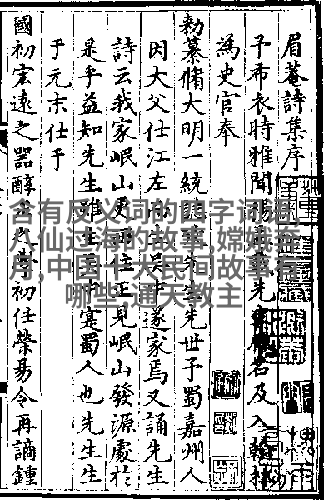 眉菴詩集序
予布衣時雅聞先名及入翰林
為史官奉
勑纂脩大明一統先世予蜀嘉州人
因大父仕江左生吳中遂家焉又誦先生
詩云我家岷山更西住正見岷山發源處於
是乎益知先生雖生吳中寔蜀人也先生生
于元末仕于
國初宏遠之器醇之學初任滎易令再謫鍾
含有反义词的四字词语,
八仙过海的故事,嫦娥奔
月,中国十大民间故事有
哪些,通天教主